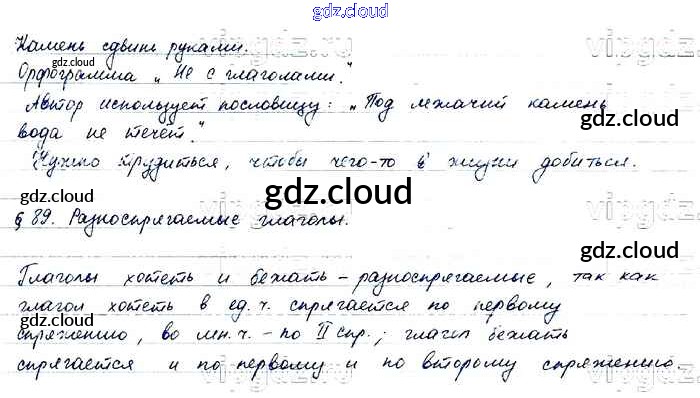 gdz.cloud
Камень сдвинь руками.
vipgdz.ru
Орфограмма „Не с глаголами."
gdz.cloud
Автор использует пословицу: „Под лежачий камень
вода не течёт."
gdz.cloud
Нужно трудиться, чтобы чего-то в жизни добиться.
gdz.cloud
gdz.cloud
vipgdz
§ 89. Разноспрягаемые глаголы.
gdz.cloud
Глаголы хотеть и бежать – разноспрягаемые, так как
глагол хотеть в ед. ч. спрягается по первому
gdz.cloud
спряжению, во мн. ч. – по II спр.; глагол бежать
gdz.cloud
спрягается и по первому и по второму спряжению.